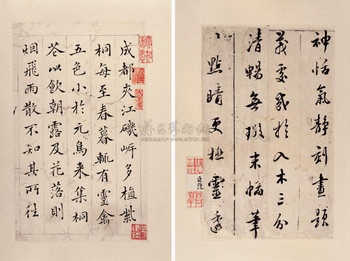 成都夾江磯岍多植紫
桐每至春暮輒有靈禽
五色小於元鳥來集桐
花以飲朝露及花落則
烟飛雨散不知其所往
神恬氣靜刻畫題
義處
入木三分
清暢無
末幅筆
小點睛更極靈透